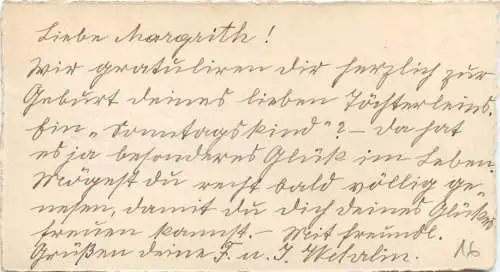 Liebe Margrith!
Wir gratuliren dir herzlich zur
Geburt deines lieben Töchterleins.
Ein „Sonntagskind"? – da hat
es ja besonderes Glück im Leben.
Mögest du recht bald völlig ge-
nesen, damit du dich deines Glückes
freuen kannst. – Mit freundl.
Grüßen deine F. u. J.
16